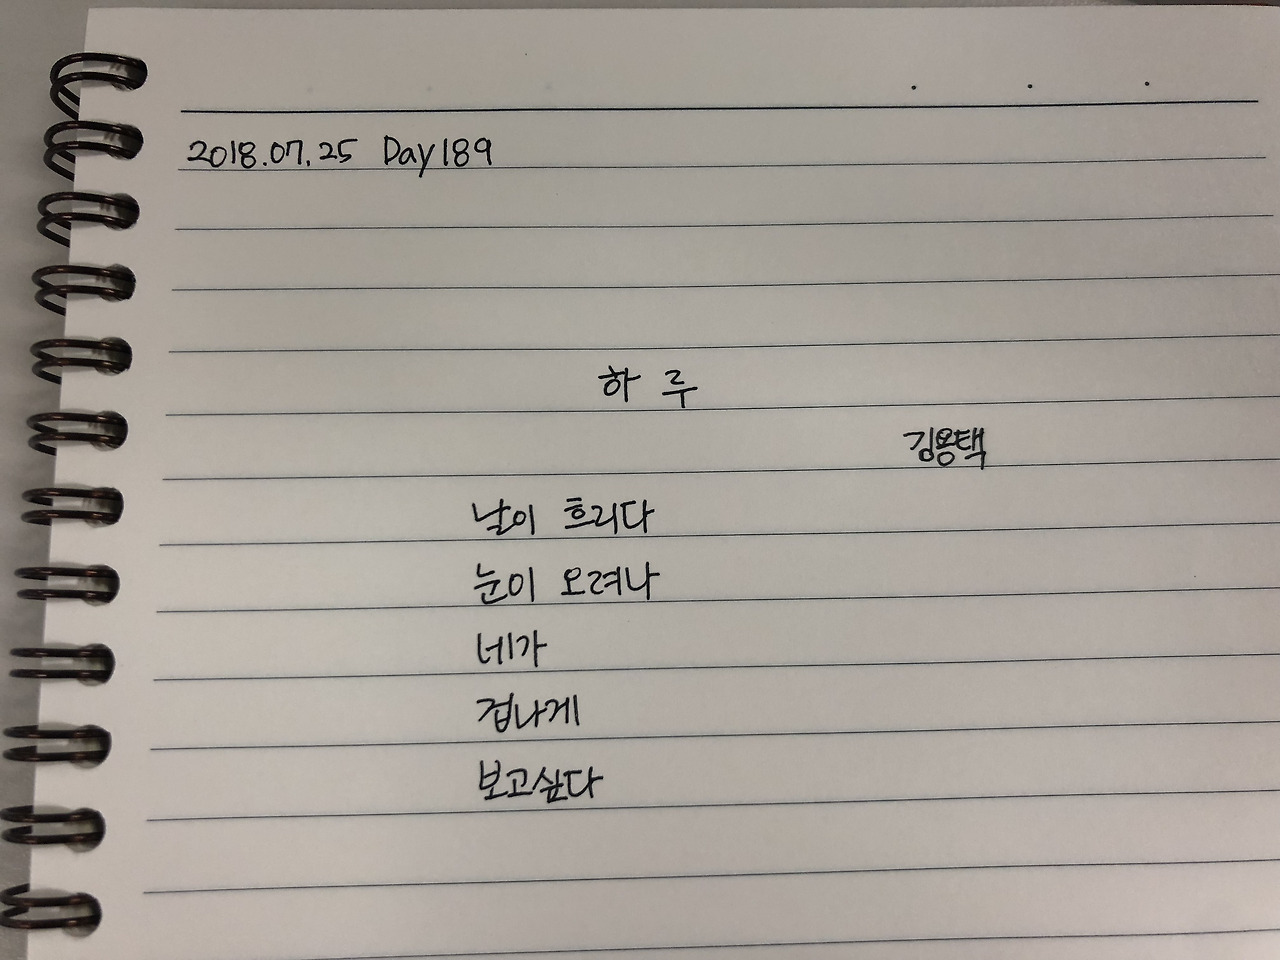 2018.07.25 Day189
하루
김용택
날이 흐리다
눈이 오려나
네가
겁나게
보고싶다